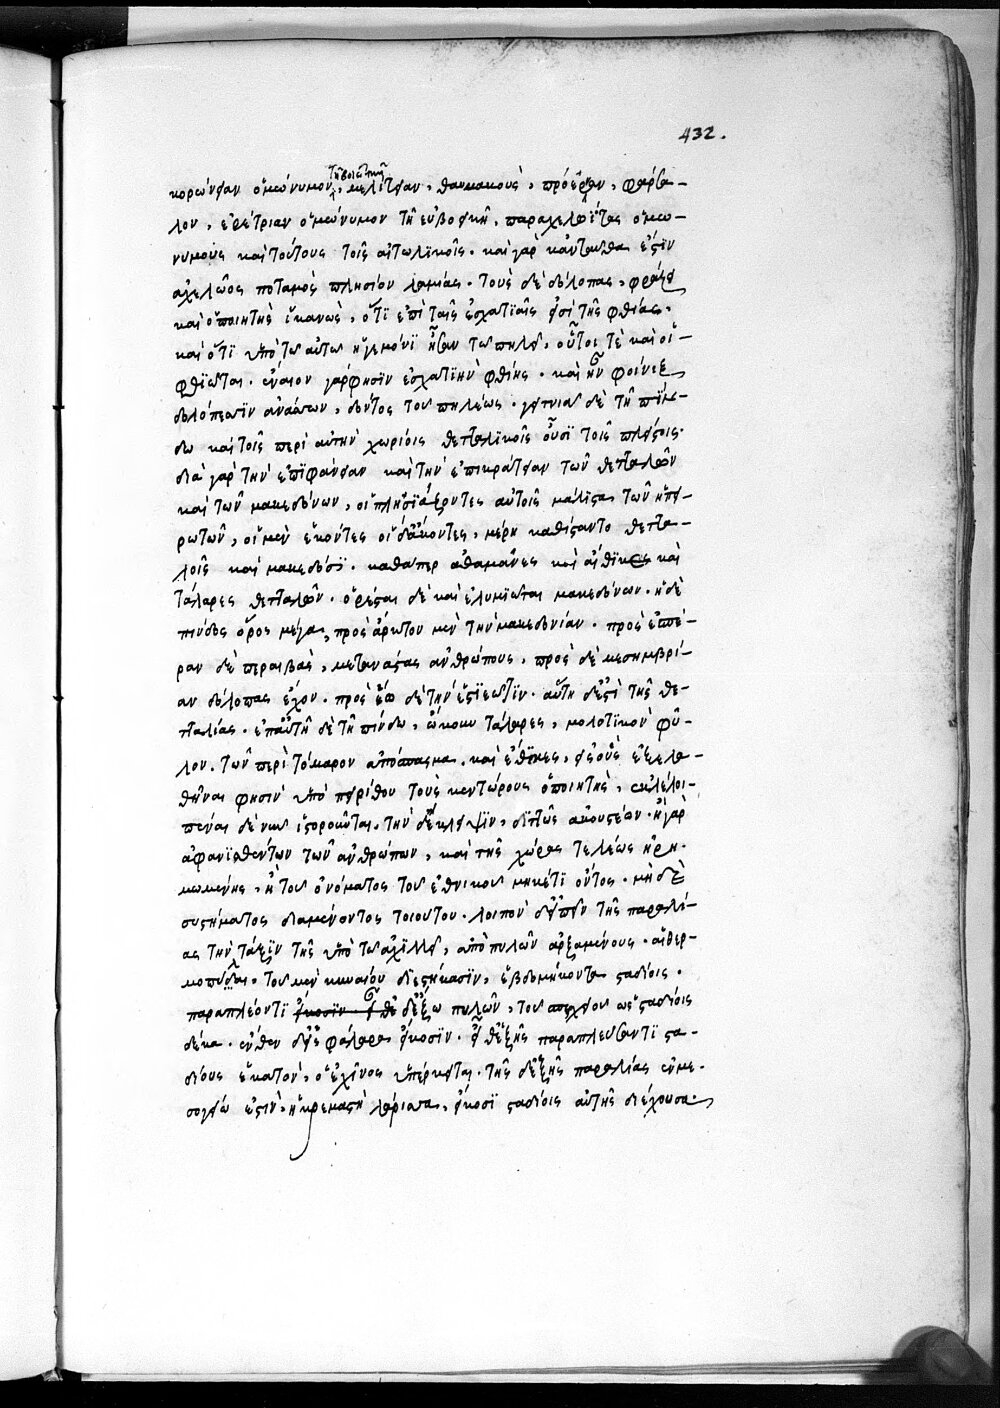 432.
τῆ βοιωτικῆ
κορώνειαν ὁμώνυμον, μελίτειαν, θαυμακοὺς, πρόερναν, φάρσα-
λον, ἐρέτριαν ὁμώνυμον τῆ εὐβοϊκῆ, παραχελωίτας ὁμω-
νύμους καὶ τούτους τοῖς αἰτωλικοῖς. καὶ γὰρ κἀνταῦθα ἐστὶν
ἀχελῶος ποταμὸς πλησίον λαμίας. τοὺς δὲ δόλοπας, φράζει
καὶ ὁ ποιητὴς ἱκανῶς, ὅτι ἐπὶ ταῖς ἐσχατιαῖς εἰσὶ τῆς φθίας.
καὶ ὅτι ὑπὸ τῶ αὐτῶ ἡγεμόνι ἦσαν τῶ πηλεῖ, οὗτοι τὲ καὶ οἱ
φθιῶται. ἔναιον γάρ φησιν ἐσχατιὴν φθίης. καὶ ἦν φοίνιξ
δολόπεσσιν ἀνάσσων, δόντος τοῦ πηλέως. γειτνιᾶ δὲ τῆ πίν-
δω καὶ τοῖς περὶ αὐτὴν χωρίοις θετταλικοῖς οὖσι τοῖς πλείστοις.
διὰ γὰρ τὴν ἐπιφάνειαν καὶ τὴν ἐπικράτειαν τῶν θετταλῶν
καὶ τῶν μακεδόνων, οἱ πλησιάζοντες αὐτοῖς μάλιστα τῶν ἠπει-
ρωτῶν, οἱ μὲν ἑκόντες οἱ δ' ἄκοντες, μέρη καθίσταντο θεττα-
λοῖς καὶ μακεδόσι. καθάπερ ἀθαμᾶνες καὶ αἴθικες καὶ
τάλαρες θετταλῶν. ὀρέσται δὲ καὶ ἐλυμιῶται μακεδόνων. ἡ δὲ
πίνδος ὄρος μέγα, πρὸς ἄρκτον μὲν τὴν μακεδονίαν. πρὸς ἑσπέ-
ραν δὲ περαιβοὺς, μετανάστας ἀνθρώπους. πρὸς δὲ μεσημβρί-
αν δόλοπας ἔχον. πρὸς ἕω δὲ τὴν ἑστιεῶτιν. αὕτη δ' ἐστὶ τῆς θε-
τταλίας. ἐπ' αὐτῆ δὲ τῆ πίνδω, ὤκουν τάλαρες, μολοτικὸν φῦ-
λον. τῶν περὶ τόμαρον ἀπόσπασμα. καὶ αἴθικες, εἰς οὓς ἐξελα-
θῆναι φησὶν ὑπὸ πειρίθου τοὺς κενταύρους ὁ ποιητὴς, ἐκλελοι-
πέναι δὲ νῦν ἱστοροῦνται. τὴν δ' ἔκλειψιν, διττῶς ἀκουστέον. ἢ γὰρ
ἀφανισθέντων τῶν ἀνθρώπων, καὶ τῆς χώρας τελέως ἠρη-
μωμένης. ἢ τοῦ ὀνόματος τοῦ ἐθνικοῦ μηκέτι ὄντος. μηδὲ
συστήματος διαμένοντος τοιούτου. λοιπὸν δ' εἰπεῖν τῆς παραλί-
ας τὴν τάξιν τῆς ὑπὸ τῶ ἀχιλλεῖ, ἀπὸ πυλῶν ἀρξαμένους. αἱ θερ-
μοπύλαι, τοῦ μὲν κηναίου διεστήκασιν, ἑβδομήκοντα σταδίοις.
παραπλέοντι δ' ἔξω πυλῶν, τοῦ σπερχειοῦ ὡς σταδίοις
δέκα. ἔνθεν δ' εἰς φάλαρα εἴκοσιν. εἶθ' ἑξῆς παραπλεύσαντι στα-
δίους ἑκατὸν, ὁ ἐχῖνος ὑπέρκειται. τῆς δ' ἑξῆς παραλίας ἐν με-
σογείω ἐστὶν, ἡ κρεμαστὴ λάρισσα, εἴκοσι σταδίοις αὐτῆς διέχουσα.